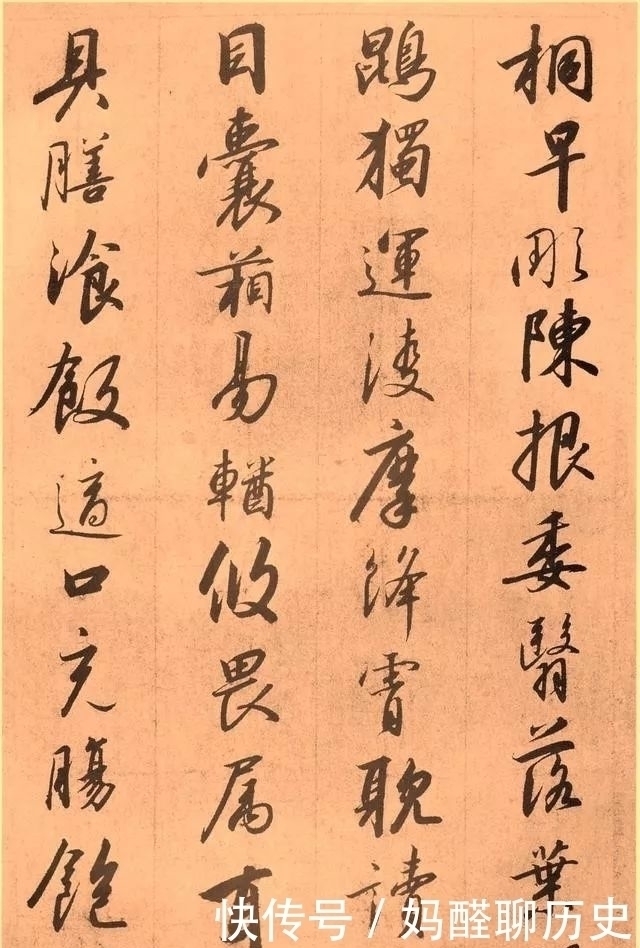 桐早彫陳根委翳落葉
鵾獨運淩摩絳霄耽讀
目囊箱易輶攸畏属耳
具膳湌飯適口充腸飽
快传号 / 妈醛聊历史